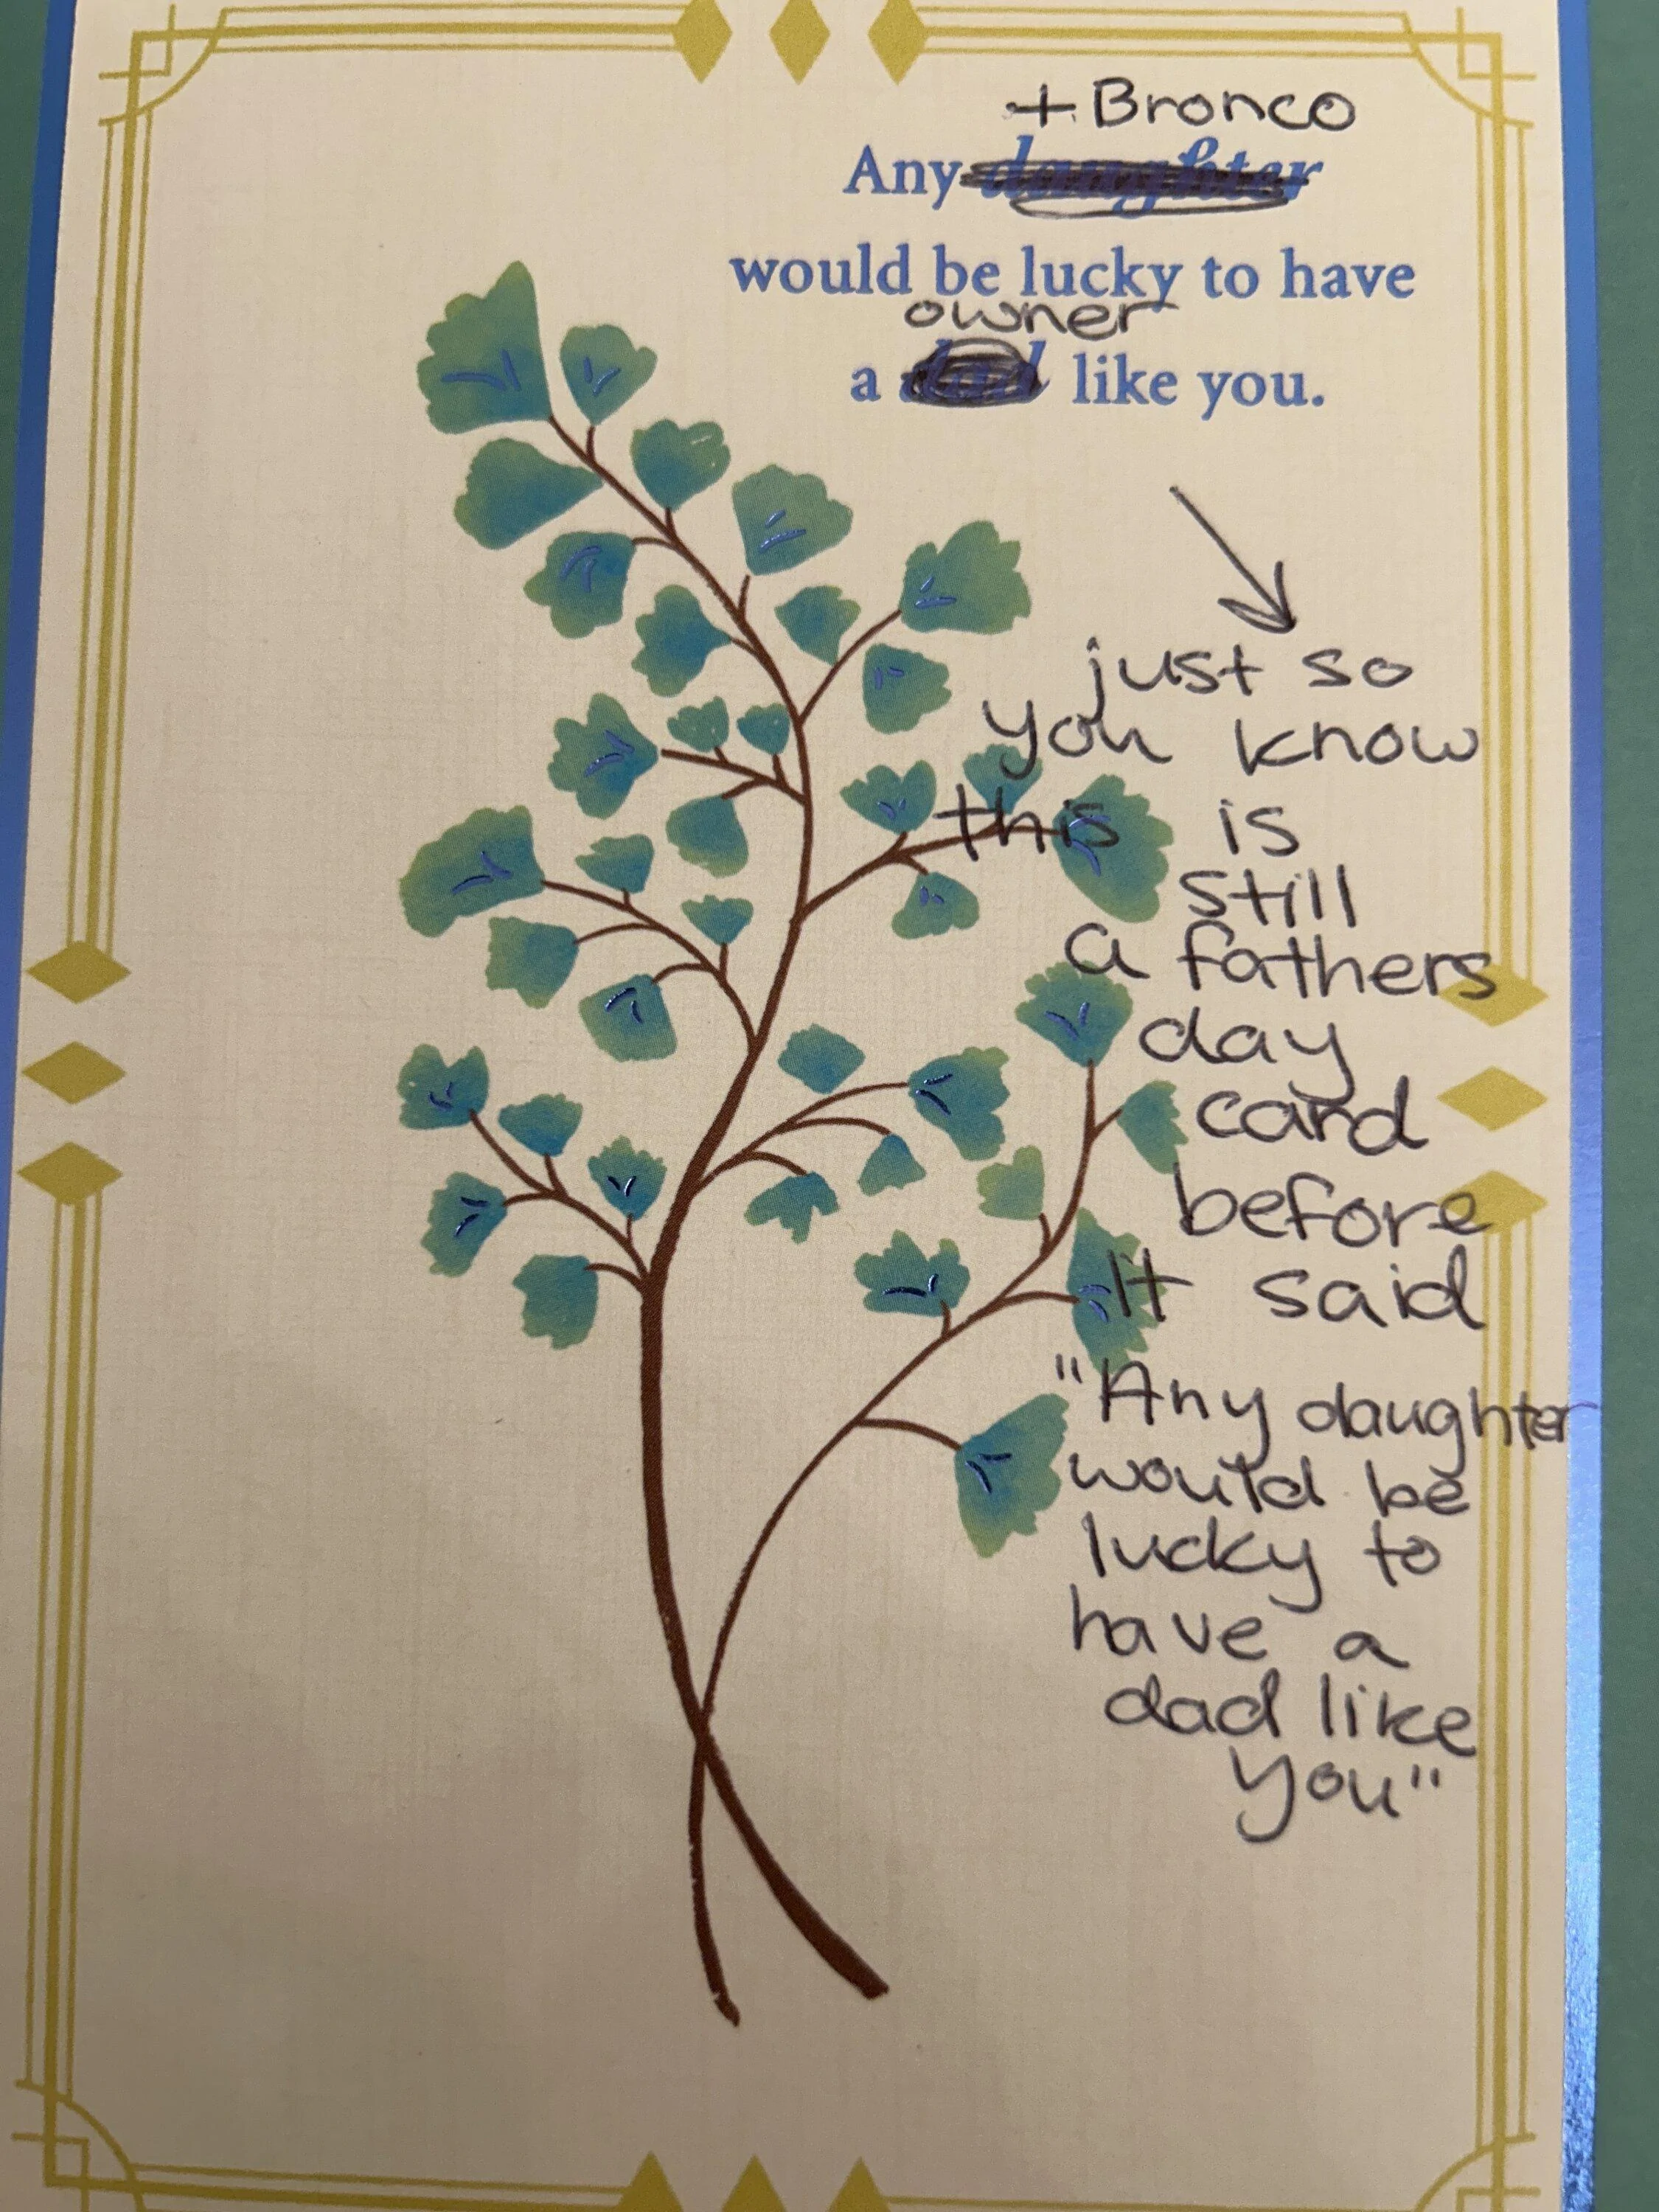 + Bronco
Any daughter
would be lucky to have
owner
a dad like you.
just so
you know
this is
still
a fathers
day
card
before
It said
"Any daughter
would be
lucky to
have a
dad like
you"